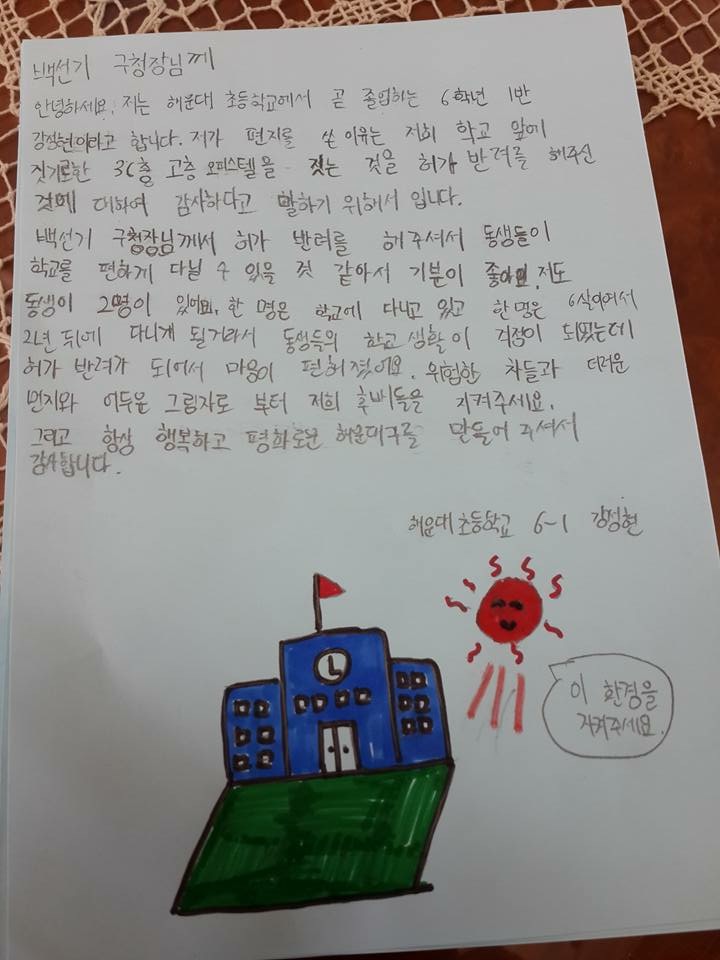 백선기 구청장님께
안녕하세요. 저는 해운대 초등학교에서 곧 졸업하는 6학년 1반
강정현이라고 합니다. 저가 편지를 쓴 이유는 저희 학교 앞에
짓기로한 36층 고층 오피스텔을 짓는 것을 허가 반려를 해주신
것에 대하여 감사하다고 말하기 위해서 입니다.
백선기 구청장님께서 허가 반려를 해주셔서 동생들이
학교를 편하게 다닐 수 있을 것 같아서 기분이 좋아요. 저도
동생이 2명이 있어요. 한 명은 학교에 다니고 있고 한명은 6살이여서
2년 뒤에 다니게 될거라서 동생들의 학교 생활이 걱정이 되었는데
허가 반려가 되어서 마음이 편해졌어요. 위험한 차들과 더러운
먼지와 어두운 그림자로 부터 저희 후배들을 지켜주세요.
그리고 항상 행복하고 평화로운 해운대구를 만들어 주셔서
감사합니다.
해운대 초등학교 6-1 강정현
이 환경을
지켜주세요.